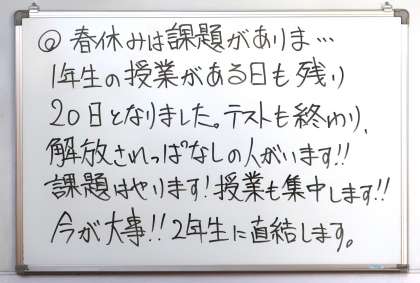 ◎春休みは課題がありま…
1年生の授業がある日も残り
20日となりました。テストも終わり、
解放されっぱなしの人がいます!!
課題はやります!授業も集中します!!
今が大事!!2年生に直結します。